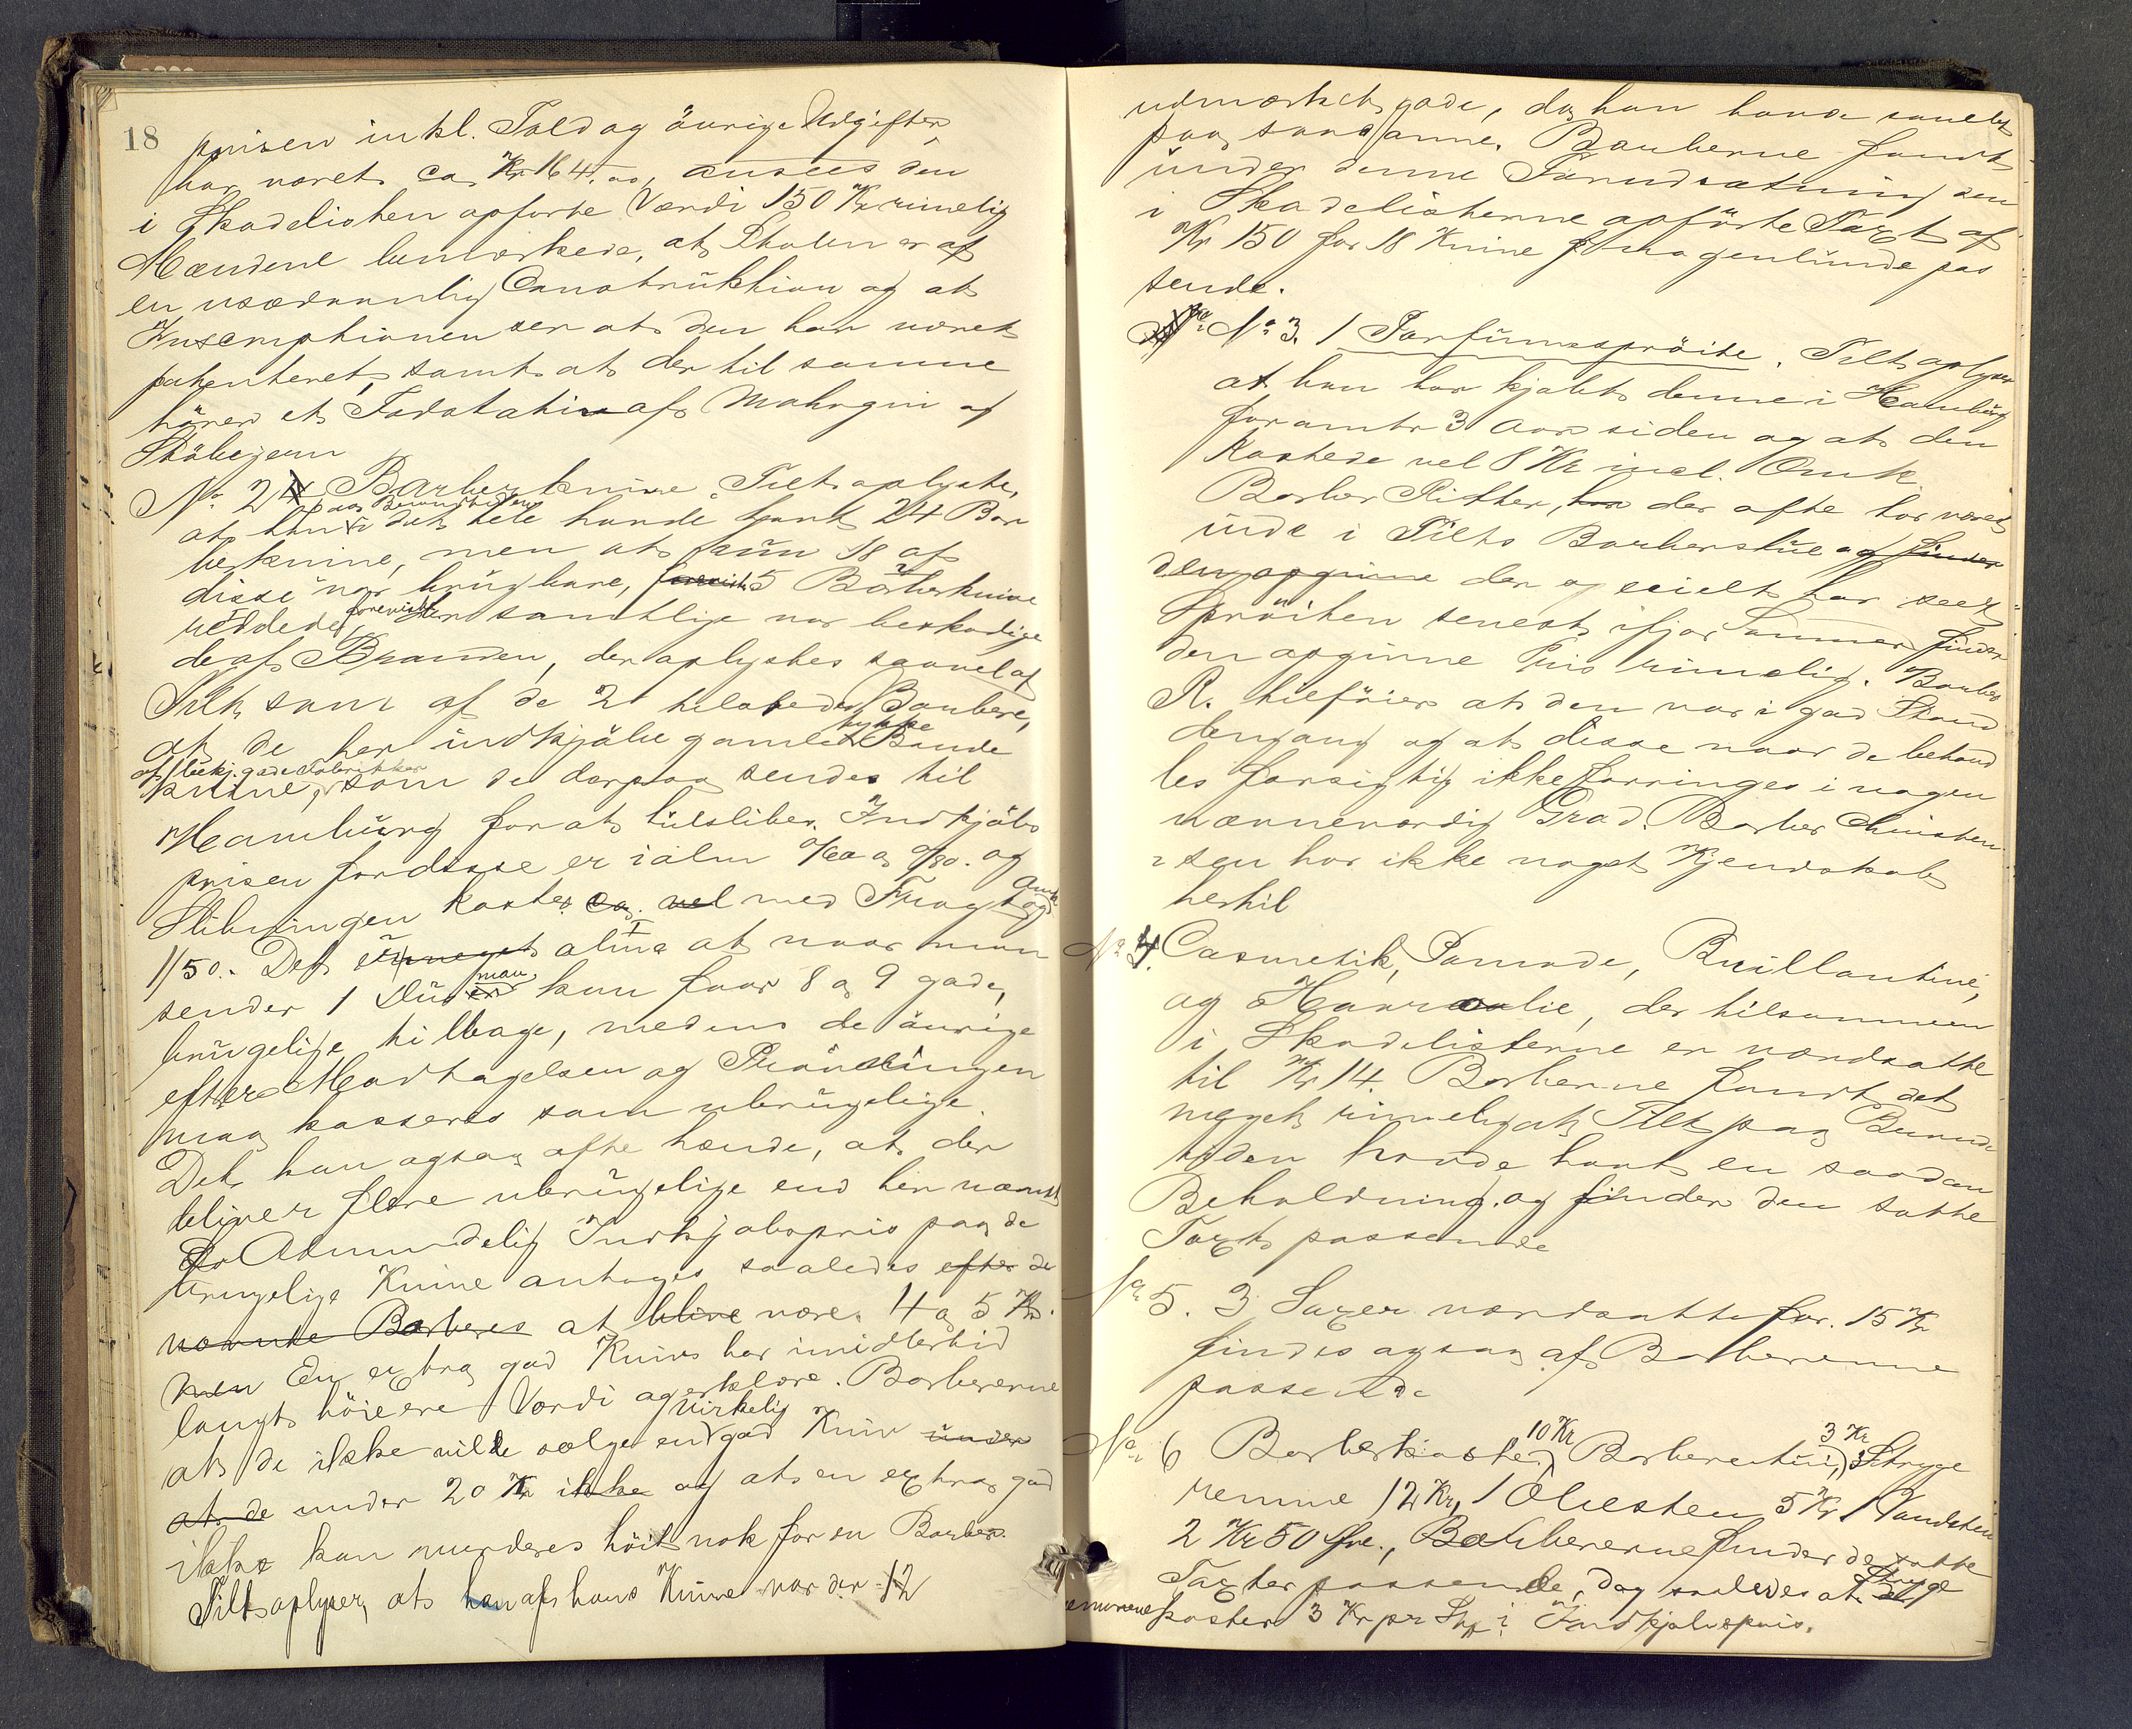 18
prisen inkl. Told og øvrige Udgifter
har været ca Kr 164.00, ansees den
i Skadelisten opførte Værdi 150 Kr rimelig
Mændene bemærkede, at Stolen er af
en usædvanlig Construktion og at
Inscriptionen ser at den har været
patenteret, samt at der til samme
hörer et Fodstativ af Mahogni og
Stöbejern
No. 2 Barberknive. Tilt oplyste,
paa Brandtiden
at han i det hele havde havt 24 Bar
berknive, men at kun 18 af
disse var brugbare, 5 Barberknive
reddede, forevistes samtlige var beskadige
de af Branden, der oplystes saavel af
Tilt som af de 2 tilstede Barbere,
at de her indkjöbe gamle tykke Baude
af bekj. gode Fabrikker
knive, som de derpaa sendes til
Hamburg for at hulslibes. Indkjöbs
prisen for disse er i alm 0/60 a 0/80. og
Slibningen koster ca. vel med Fragt og Omk
1/50. Det er meget alm at naar man
sender 1 Dusin man kun faar 8 a 9 gode,
brugelige tilbage, medens de øvrige
efter Modtagelsen og Prøvningen
maa kasseres som ubrugelige.
Det kan ogsaa ofte hænde, at der
bliver flere ubrugelige end her nævnt
En Almindelig Indkjøbspris paa de
brugelige Knive antages saaledes efter de
nævnte Barberes at blive være 4 a 5 Kr.
men En extra god Kniv har imidlertid
langt höiere Værdi og erklære Barbererne
at de ikke vilde sælge en virkelig god Kniv under
at de under 20 Kr ikke og at en extra god
ikke kan vurderes höit nok for en Barber.
Tilt oplyser, at han af hans Knive var der 12
udmærket gode, da han havde
paa saadanne. Barberne fandt
under denne Forudsætning den
i Skadelisterne opförte Taxt af
Kr 150 for 18 Knive nogenlunde pas
sende.
No 3. 1 Parfumespröite. Tilt oplyser
at han har kjøbt denne i Hamburg
for omtr 3 Aar siden og at den
kostede vel 8 Kr incl. Omk.
Barber Ritter, han der ofte har været
inde i Tilts Barberstue og finder
den opgivne der specielt har seet
Spröiten senest ifjor Sommer finder
den opgivne Pris rimelig. Barber
R. tilföier at den var i god Stand
dengang og at disse naar de behand
les forsigtig ikke forringes i nogen
nævneværdig Grad. Barber Christen
sen har ikke noget Kjendskab
hertil
No 4. Cosmetik, Pomade, Brillantine,
og Haarolie, der tilsammen
i Skadelisterne er værdsatte
til Kr 14. Barberne fandt det
meget rimelig at Tilt paa Brand
tiden havde havt en saadan
Beholdning og finder den satte
Taxt passende
No 5. 3 Saxer værdsatte for. 15 Kr
findes ogsaa af Barbererne
passende
No 6 Barberkoster 10 Kr, Barberetui, 3 Kr Stryge
remme 12 Kr, 1 Oliesten 5 Kr 1 Vandsten
2 Kr 50 Øre., Barbererne finder de satte
Taxter passende, dog saaledes at Stryge
remmene koster 3 Kr pr Stk i Indkjøbspris.